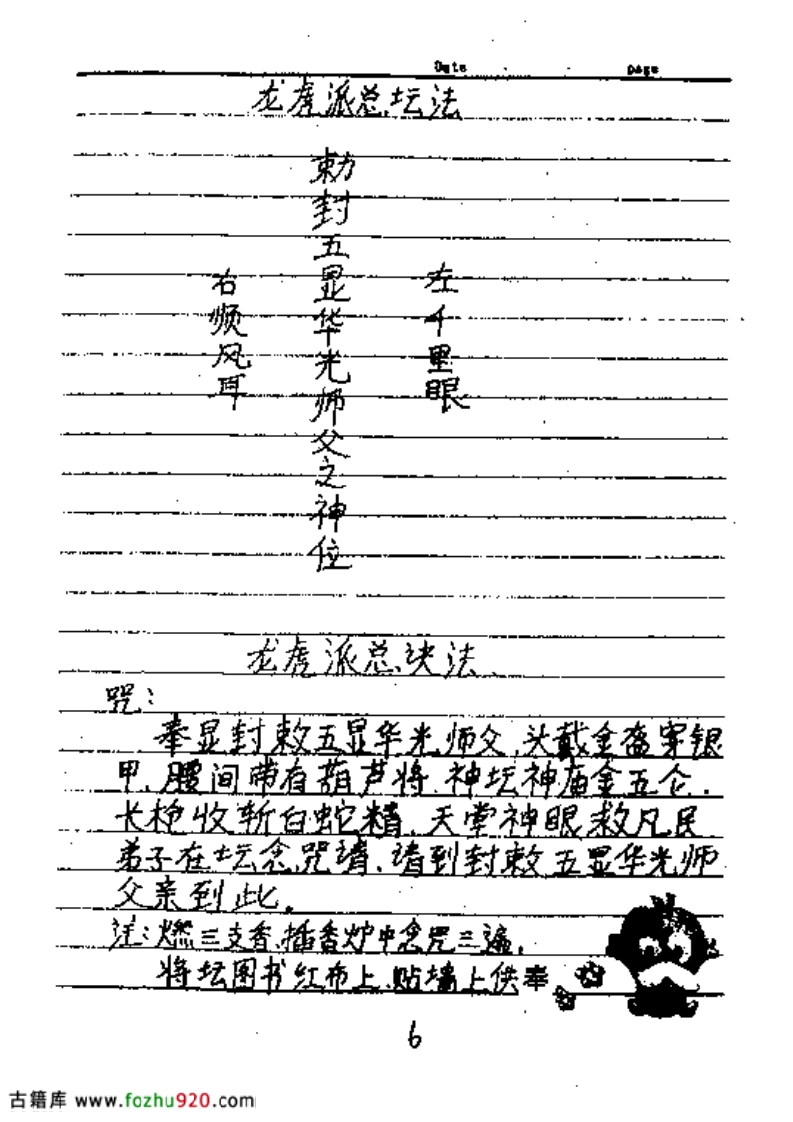 Date Page
龙虎派总坛法
左千里眼
勅封五显华光师父之神位
右顺风耳
龙虎派总决法
咒：
奉显封敕五显华光师父，头戴金盔穿银
甲，腰间带有葫芦将，神坛神庙金五仑，
长枪收斩白蛇精，天堂神眼救凡民
弟子在坛念咒请，请到封敕五显华光师
父亲到此。
注：燃三支香，插香炉中念咒三遍，
将坛图书红布上，贴墙上供奉
6
古籍库 www.fozhu920.com